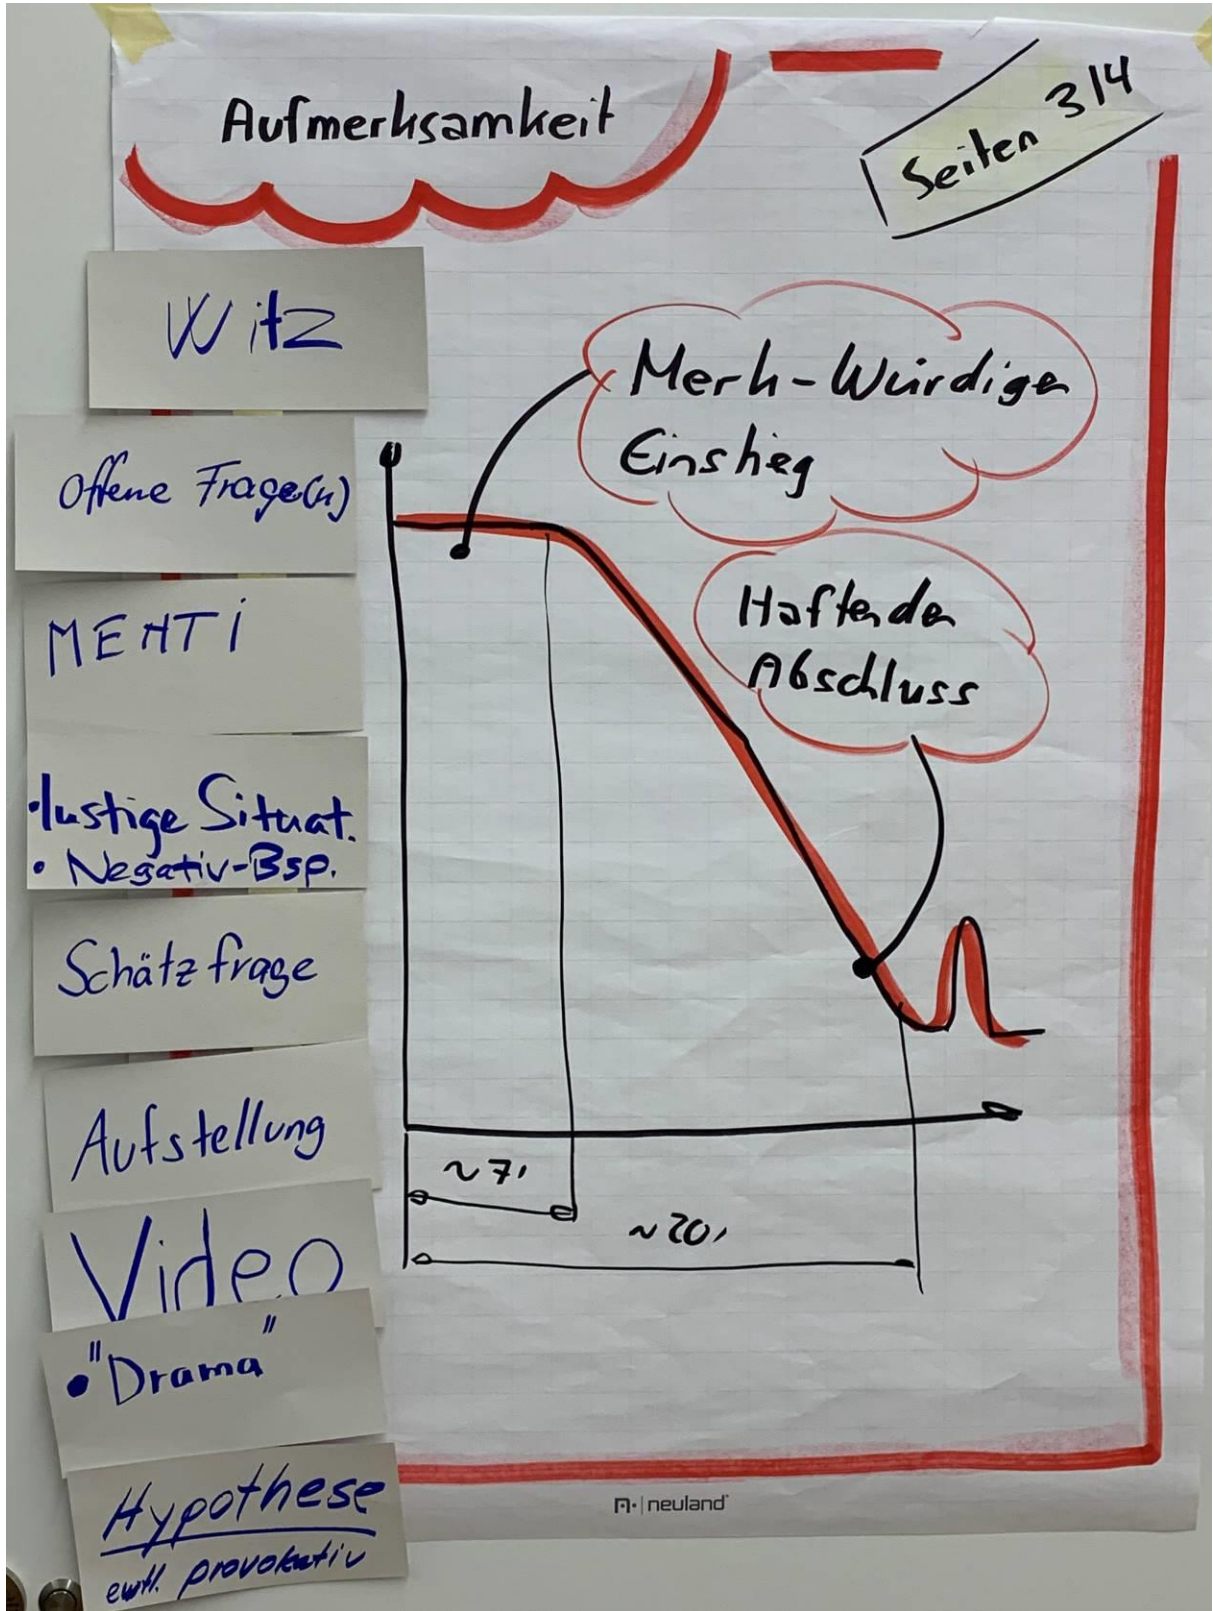 Aufmerksamkeit
Seiten 3/4
Witz
Offene Frage(n)
MENTI
• lustige Situat.
• Negativ-Bsp.
Schätzfrage
Aufstellung
Video
• "Drama"
Hypothese
evtl. provokativ
Merk-Würdiger
Einstieg
Haftender
Abschluss
~ 7'
~ 20'
neuland